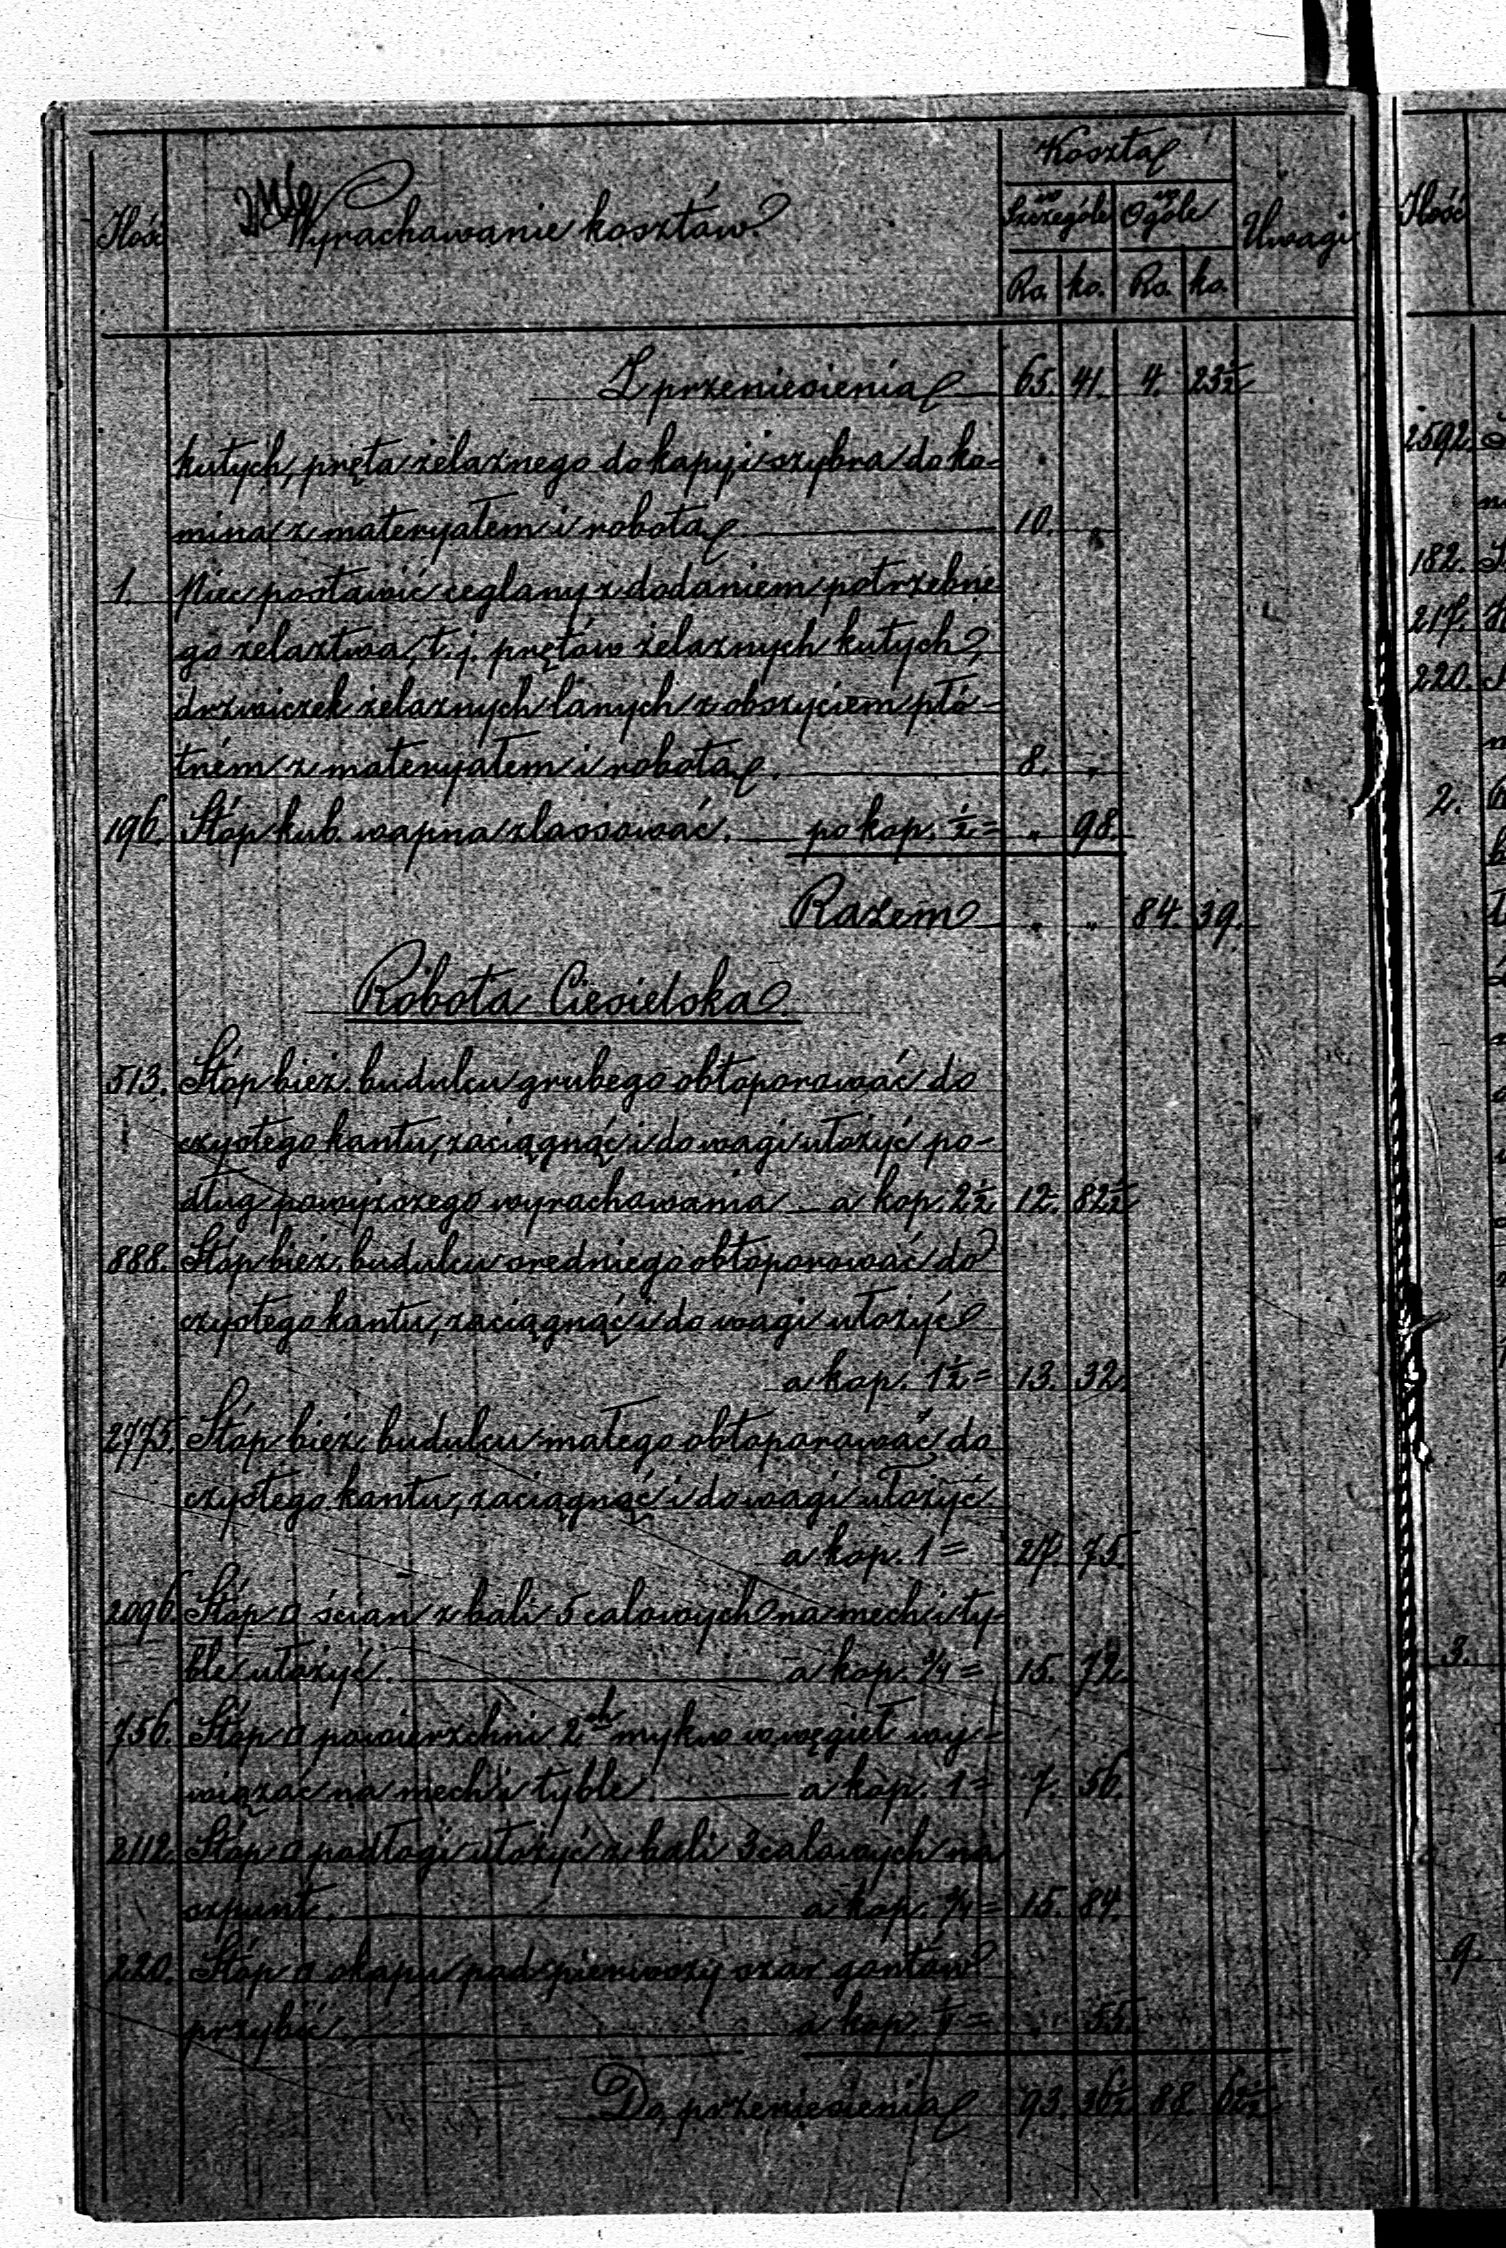 Ilość
Wyrachawanie kosztów
Koszta
w Szczególe
w Ogóle
Uwagi
Rs. ko. Rs. ko.
Z przeniesienia 65. 41. 4. 23½
kutych, pręta żelaznego do kapy i szybra do ko-
mina z materyałem i robotą 10. „
1. Piec postawić ceglany z dodaniem potrzebne
go żelaztwa, t. j. prętów żelaznych kutych,
drzwiczek żelaznych lanych z obszyciem płó-
tném z materyałem i robotą. 8. „
196. Stóp kub. wapna zlassować. po kop. ½ = „ 98.
Razem „ „ 84. 39.
Robota Ciesielska.
513. Stóp bież. budulcu grubego obtoporować do
czystego kantu, zaciągnąć i do wagi ułożyć po-
dług powyższego wyrachawania a kop. 2½ 12. 82½
888. Stóp bież. budulcu sredniego obtoporować do
czystego kantu, zaciągnąć i do wagi ułożyć
a kop. 1½ = 13. 32.
2775. Stóp bież. budulcu małego obtoporować do
czystego kantu, zaciągnąć i do wagi ułożyć
a kop. 1 = 27. 75.
2096. Stóp □ ścian z bali 5 calowych na mech i ty-
ble ułożyć. a kop. ¾ = 15. 72.
756. Stóp □ powierzchni 2ch mykw w węgieł wy-
wiązać na mech i tyble. a kop. 1 = 7. 56.
2112. Stóp □ podłogi ułożyć z bali 3 calowych na
szpunt. a kop. ¾ = 15. 84.
220. Stóp □ okapu pod pierwszy szar gontów
przybić. a kop. ¼ = „ 55.
Do przeniesienia 93. 56½ 88. 62½
Ilość
2592.
182.
217.
220.
2.
3.
9.